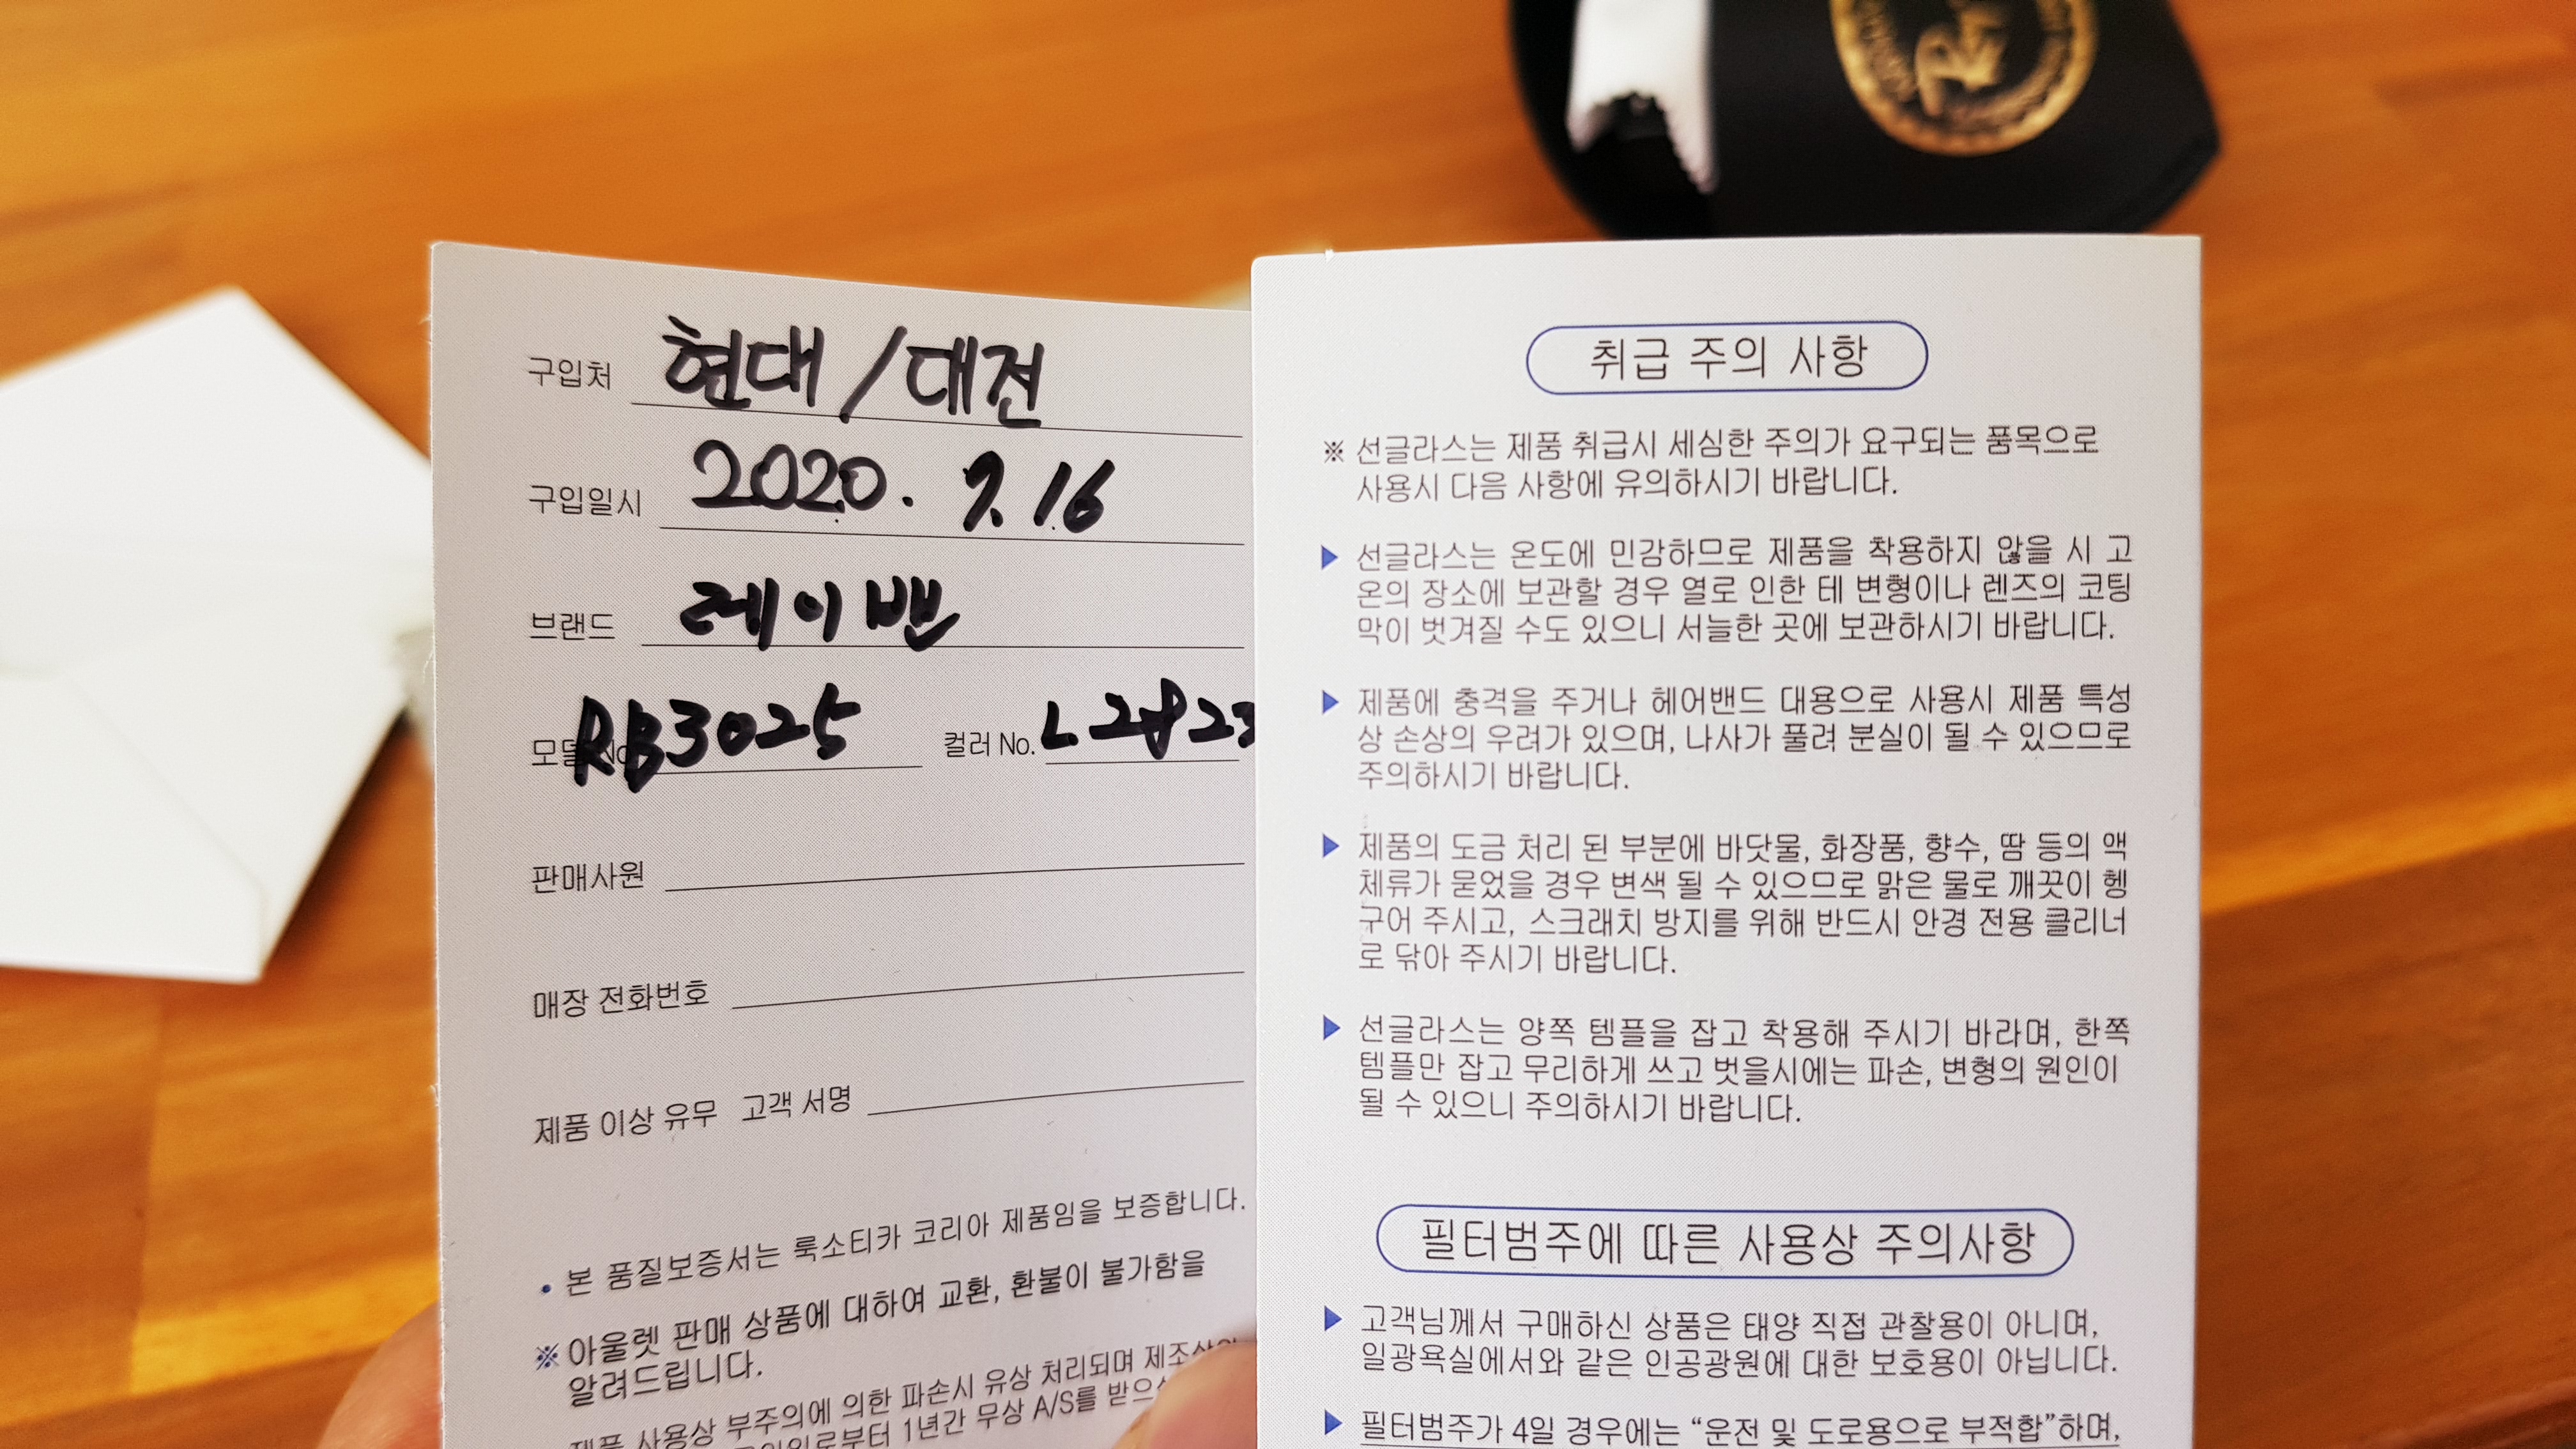 구입처 현대/대전
구입일시 2020. 7. 16
브랜드 레이밴
모델 No. RB3025 컬러 No. L2823
판매사원
매장 전화번호
제품 이상 유무 고객 서명
• 본 품질보증서는 룩소티카 코리아 제품임을 보증합니다.
※ 아울렛 판매 상품에 대하여 교환, 환불이 불가함을
알려드립니다.
제품 사용상 부주의에 의한 파손시 유상 처리되며
1년간 무상 A/S를
취급 주의 사항
※ 선글라스는 제품 취급시 세심한 주의가 요구되는 품목으로
사용시 다음 사항에 유의하시기 바랍니다.
▶ 선글라스는 온도에 민감하므로 제품을 착용하지 않을 시 고
온의 장소에 보관할 경우 열로 인한 테 변형이나 렌즈의 코팅
막이 벗겨질 수도 있으니 서늘한 곳에 보관하시기 바랍니다.
▶ 제품에 충격을 주거나 헤어밴드 대용으로 사용시 제품 특성
상 손상의 우려가 있으며, 나사가 풀려 분실이 될 수 있으므로
주의하시기 바랍니다.
▶ 제품의 도금 처리 된 부분에 바닷물, 화장품, 향수, 땀 등의 액
체류가 묻었을 경우 변색 될 수 있으므로 맑은 물로 깨끗이 헹
구어 주시고, 스크래치 방지를 위해 반드시 안경 전용 클리너
로 닦아 주시기 바랍니다.
▶ 선글라스는 양쪽 템플을 잡고 착용해 주시기 바라며, 한쪽
템플만 잡고 무리하게 쓰고 벗을시에는 파손, 변형의 원인이
될 수 있으니 주의하시기 바랍니다.
필터범주에 따른 사용상 주의사항
▶ 고객님께서 구매하신 상품은 태양 직접 관찰용이 아니며,
일광욕실에서와 같은 인공광원에 대한 보호용이 아닙니다.
▶ 필터범주가 4일 경우에는 “운전 및 도로용으로 부적합”하며,